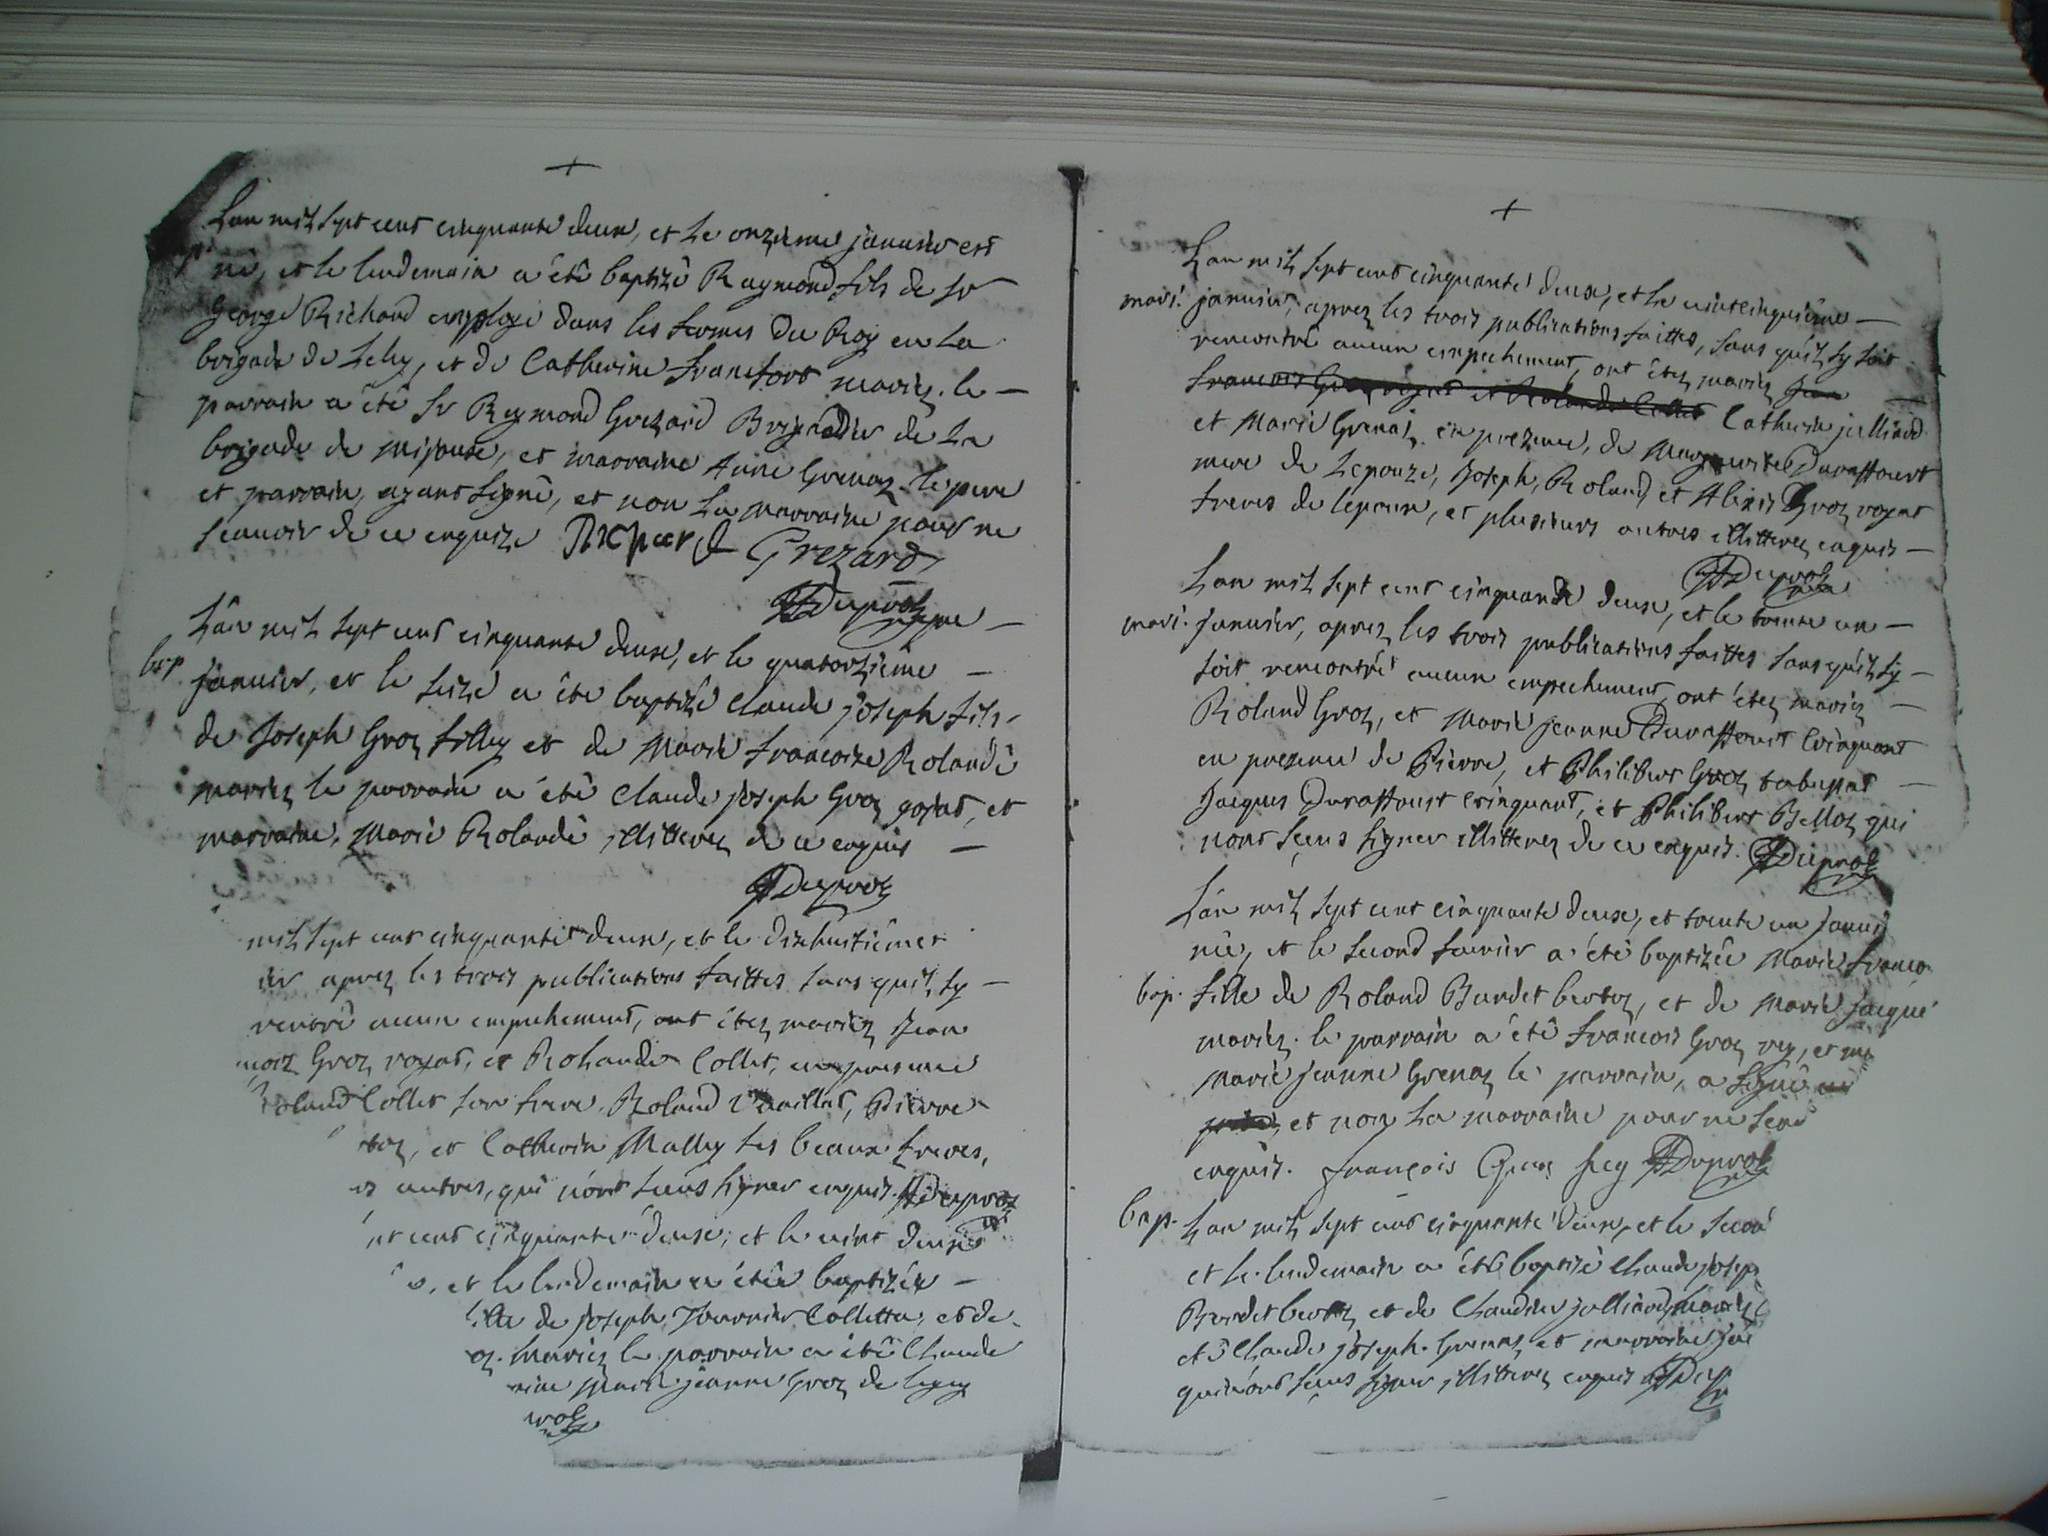 +
Lan mil sept cent cinquante deux, et le onzieme janvier est
né, et le lendemain a été baptizé Raymond fils de sr
George Richard employé dans les fermes du Roy en la
brigade de Lelex, et de Catherine francfort mariez. le
parrain a été sr Reymond Grezard Brigadier de la
brigade de mijoux, et marraine Anne Grenaz. le pere
et parrain ayant signé, et non la marraine pour ne
scauoir de ce enquize Richard Grezard
Duproz
Lân mil sept cent cinquante deux, et le quatorzieme
bap. janvier, et le seize a été baptizé claude joseph fils
de Joseph Groz tilley et de Marie francoize Rolandè
mariez le parrain a été Claude joseph Groz gojat, et
marraine, Marie Rolandè illitterez de ce enquis
Duproz
mil sept cent cinquante deux, et le dixhuitiême
ier aprez les trois publications faittes sans quil sy
rencontré aucun empechement, ont étez mariez Jean
Groz royat, et Rolande Collet, en presence
Roland Collet son frere, Roland Vuaillat, Pierre
et Catherin Malley ses beaux freres,
autres, qui n'ont sceus signer enquis. Duproz
pt cent cinquante deux, et le vint deux
et le lendemain a étée baptizée
ille de joseph Tournier Colletta, et de
oz. mariez le parrain a été Claude
raine Marie jeanne Groz de
roz
+
Lan mil sept cent cinquante deux, et le vintcinquiême
mari. janvier, aprez les trois publications faittes, sans qu'il sy soit
rencontré aucun empechement, ont étez mariez Jean
francois Groz royat et Rolande Collet Catherin julliard
et Marie Grenaz. en prezence, de Marguerite Duraffourt
mere de lepouze, Joseph, Roland, et Alexis Groz royat
freres de lepoux, et plusieurs autres illitterez enquis
Duproz
Lan mil sept cent cinquante deux, et le trente un
mari. janvier, aprez les trois publications faittes sans qu'il sy
soit rencontré aucun empechement, ont étez mariez
Roland Groz, et Marie jeanne Duraffourt Crinquant
en presence de Pierre, et Philibert Groz tabussat
Jacques Duraffourt Crinquant, et Philibert Belloz qui
nont sceus signer illitterez de ce enquis. Duproz
Lân mil sept cent cinquante deux, et trente un Janvi
née, et le second feurier a été baptizée Marie franco
bap. fille de Roland Burdet bertoz, et de Marie jacque
mariez. le parrain a été francois Groz rey, et ma
Marie jeanne Grenaz le parrain, a signé
et non la marraine pour ne sca
enquis. françois Groz Rey Duproz
bap. Lan mil sept cent cinquante deux, et le secon
et le lendemain a été baptizé Claude josep
Burdet bertoz et de Claudine julliard, mariez
eté Claude joseph Grenaz, et marraine jea
qui n'ont sceus signer illitterez enquis Dup